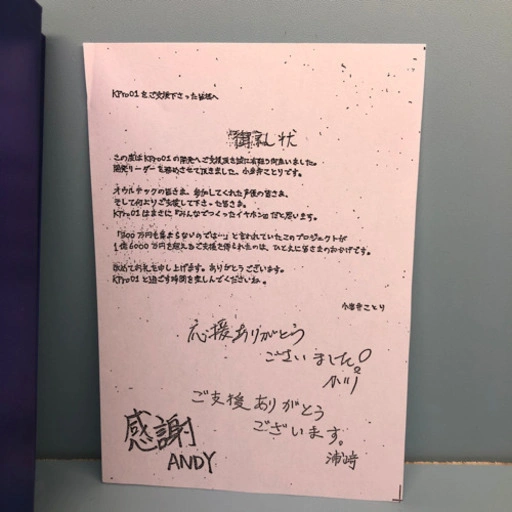 KPro01をご支援下さった皆様へ
御礼状
この度はKPro01の開発へご支援頂き誠に有難う御座いました。
開発リーダーを務めさせて頂きました、小岩井ことりです。
オウルテックの皆さま、参加してくれた声優の皆さま、
そして何よりご支援して下さった皆さま。
KPro01はまさに『みんなでつくったイヤホン』だと思います。
「200万円も集まらないのでは…」と言われていたこのプロジェクトが
1億6000万円を超えるご支援を得られたのは、ひとえに皆さまのおかげです。
改めてお礼を申し上げます。ありがとうございます。
KPro01と過ごす時間を楽しんでくださいね。
小岩井ことり
応援ありがとう
ございました。
小川
ご支援ありがとう
ございます。
感謝
ANDY